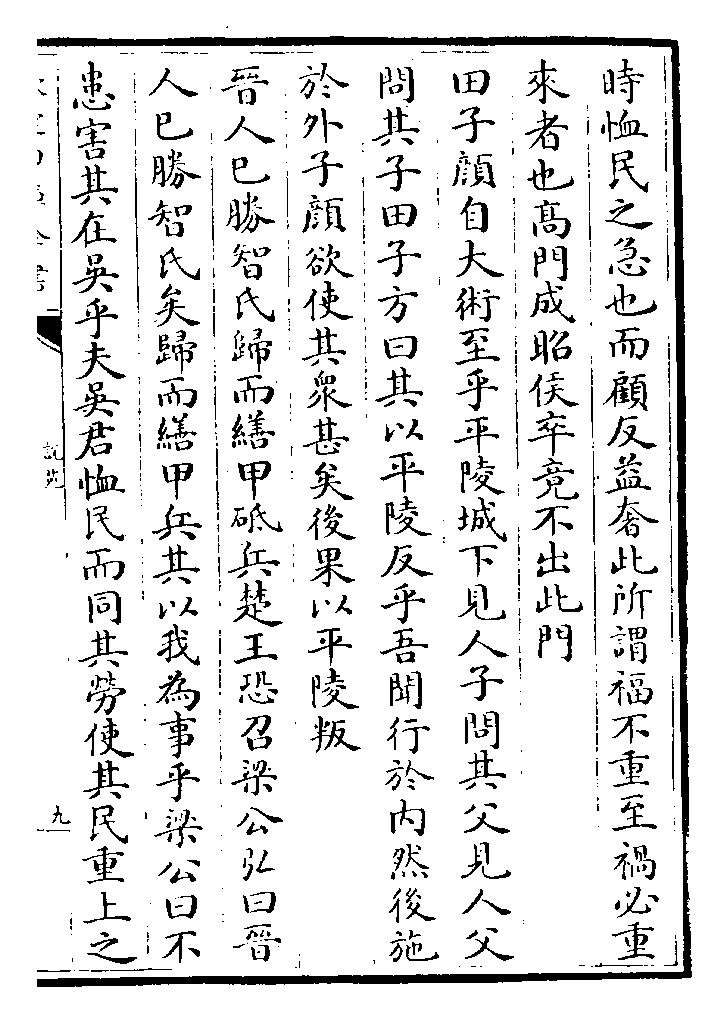 時恤民之急也而顧反益奢此所謂福不重至禍必重
來者也髙門成昭侯卒竟不出此門
田子顔自大術至乎平陵城下見人子問其父見人父
問其子田子方曰其以平陵反乎吾聞行於内然後施
於外子顔欲使其衆甚矣後果以平陵叛
晉人已勝智氏歸而繕甲砥兵楚王恐召梁公弘曰晉
人已勝智氏矣歸而繕甲兵其以我為事乎梁公曰不
患害其在吳乎夫吳君恤民而同其勞使其民重上之
說苑
九